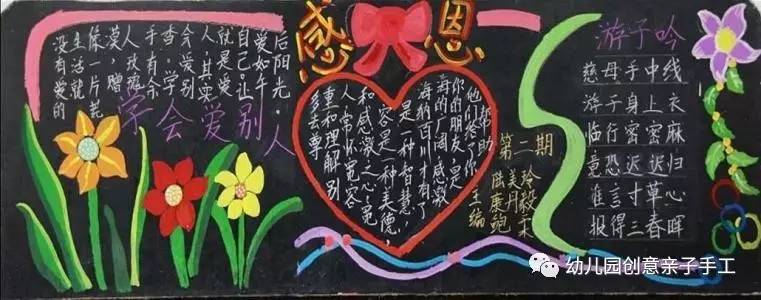 感恩
没有爱的
生活就
像一片荒
漠，赠
人玫瑰
手有余
香，学
会爱别
人，其实
就是爱
自己，让
爱如午
后阳光，
学会爱别人
多去尊
重和理解别
人，常怀宽容
和感激之心，宽
容是一种美德，
是一种智慧，
海纳百川才有了
海的广阔，感激
你的朋友，是
他们给了你
帮助
第二期
主编
游子吟
慈母手中线
游子身上衣
临行密密麻
意恐迟迟归
谁言寸草心
报得三春晖
幼儿园创意亲子手工